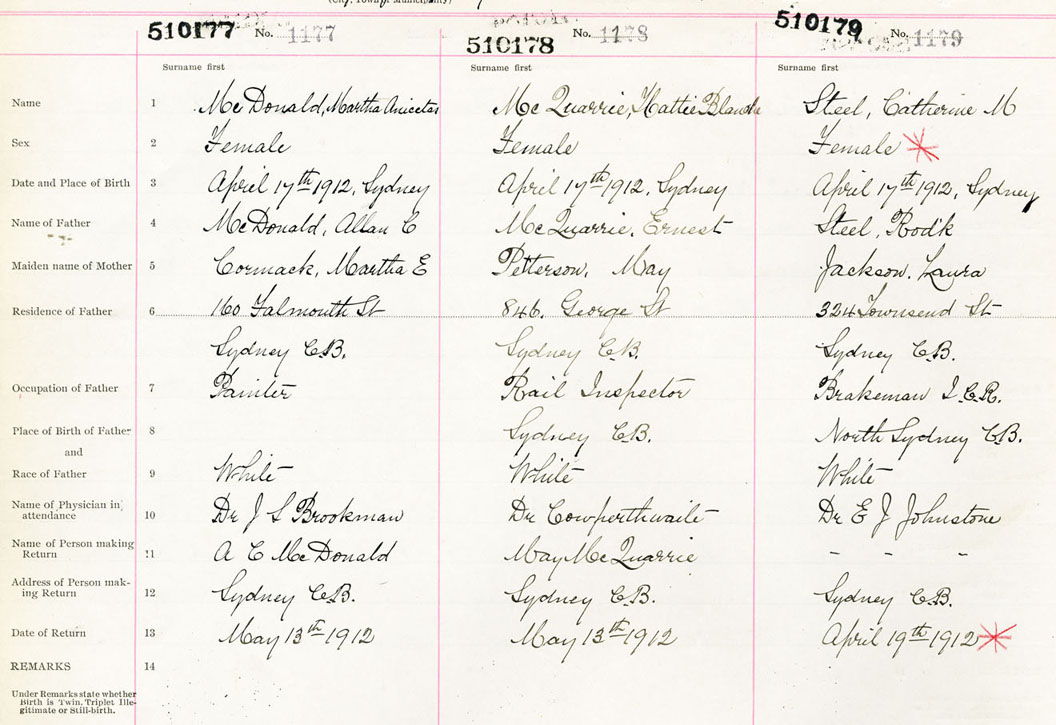 (City, Town, Municipality)
510177 No. 1177
510178 No. 1178
510179 No. 1179
Surname first Surname first Surname first
Name 1 McDonald, Martha Anicetas McQuarrie, Hattie Blanche Steel, Catherine M
Sex 2 Female Female Female
Date and Place of Birth 3 April 17th 1912, Sydney April 17th 1912, Sydney April 17th 1912, Sydney
Name of Father 4 McDonald, Allan C McQuarrie, Ernest Steel, Rodk
Maiden name of Mother 5 Cormack, Martha E Petterson, May Jackson, Laura
Residence of Father 6 160 Falmouth St 846, George St 324 Townsend St
Sydney C.B. Sydney C.B. Sydney C.B.
Occupation of Father 7 Painter Rail Inspector Brakeman I.C.R.
Place of Birth of Father 8 Sydney C.B. North Sydney C.B.
and
Race of Father 9 White White White
Name of Physician in attendance 10 Dr J S Brookman Dr Cowperthwaite Dr E J Johnstone
Name of Person making Return 11 A C McDonald May McQuarrie - - -
Address of Person mak-
ing Return 12 Sydney C.B. Sydney C.B. Sydney C.B.
Date of Return 13 May 13th 1912 May 13th 1912 April 19th 1912
REMARKS 14
Under Remarks state whether
Birth is Twin, Triplet Ille-
gitimate or Still-birth.